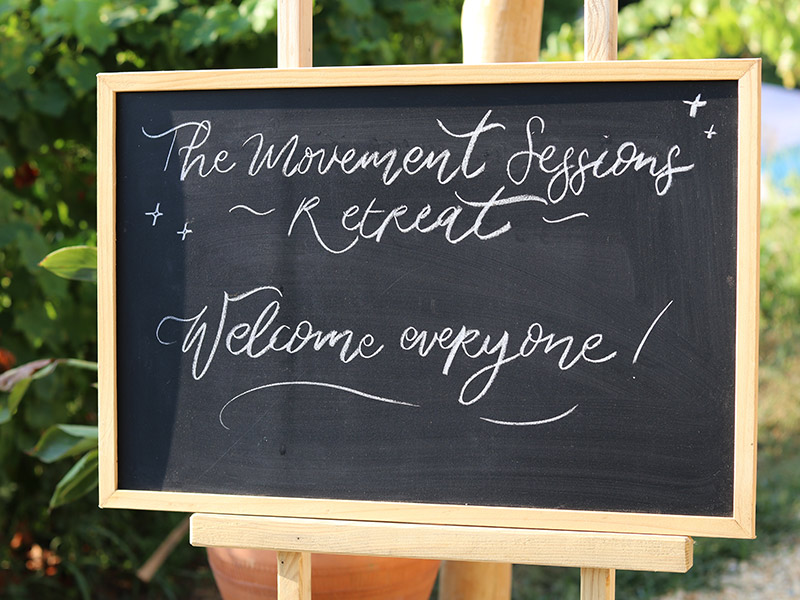 The Movement Sessions
~ Retreat ~
Welcome everyone!